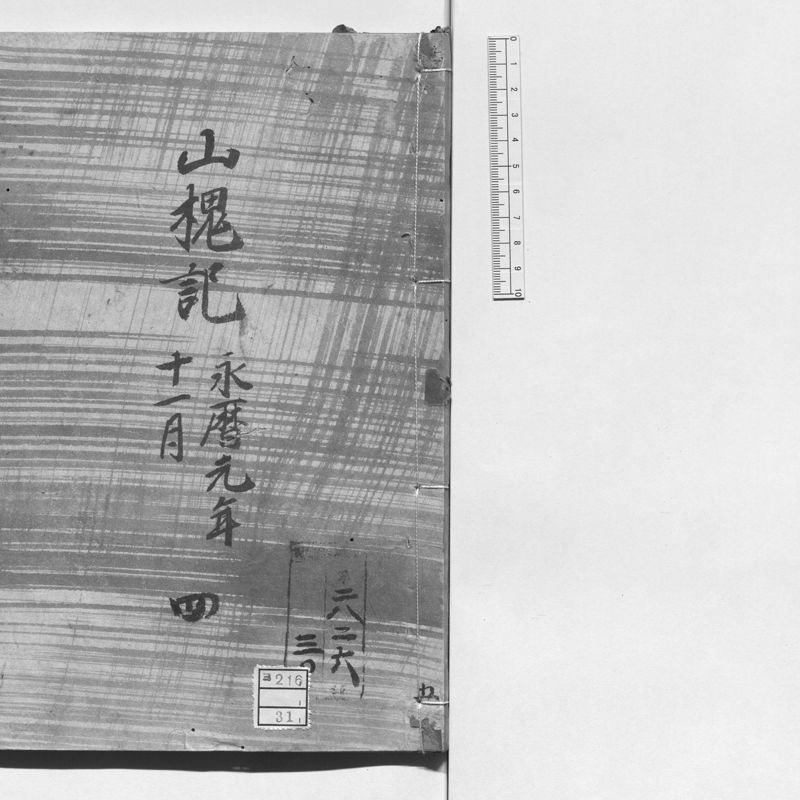 山槐記
永暦元年
十一月
四
二八二六
三
216
31
0
1
2
3
4
5
6
7
8
9
10